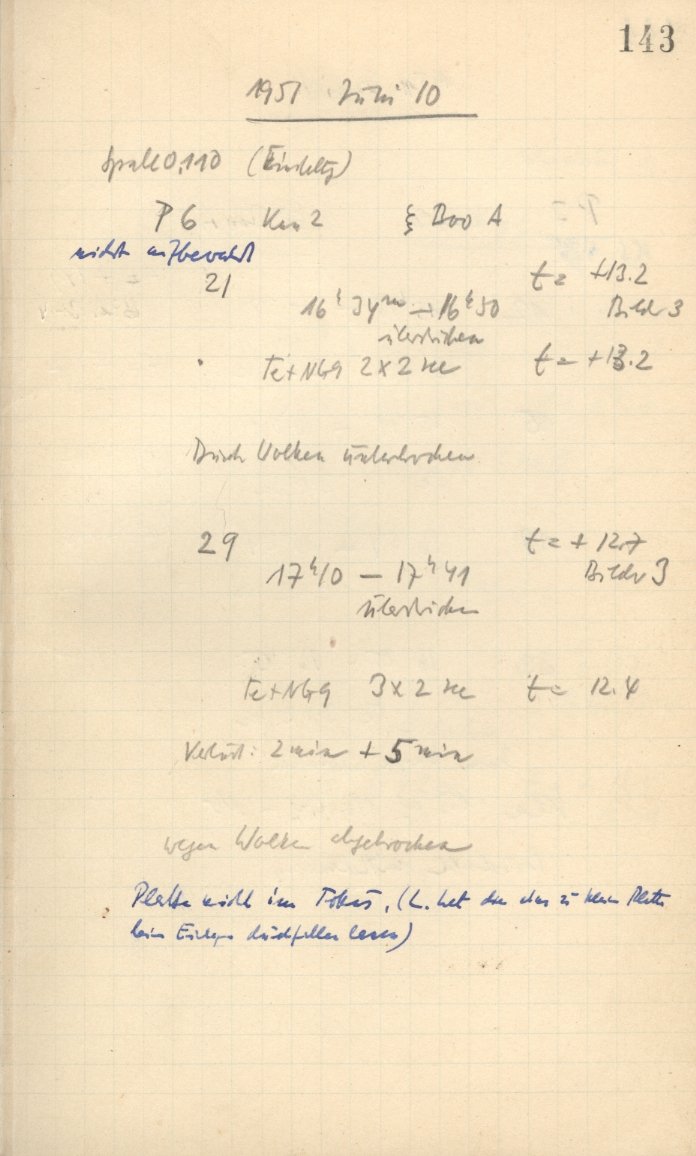 143
1951 Juni 10
Spalt 0,110
P 6 Kam 2 ξ Boo A
nicht aufbewahrt
21 t = +13.2
16ʰ 34ᵐ – 16ʰ 50 Bilder 3
überstrichen
Fe+Ng 2 x 2 sec t = +13.2
Durch Wolken unterbrochen
29 t = + 12.7
17ʰ10 – 17ʰ41 Bilder 3
überstrichen
Fe+Ng 3 x 2 sec t = 12.4
Verlust: 2 min + 5 min
wegen Wolken abgebrochen
Platte nicht im Fokus, (L. hat die etwas zu kleine Platte
beim Einlegen durchfallen lassen)